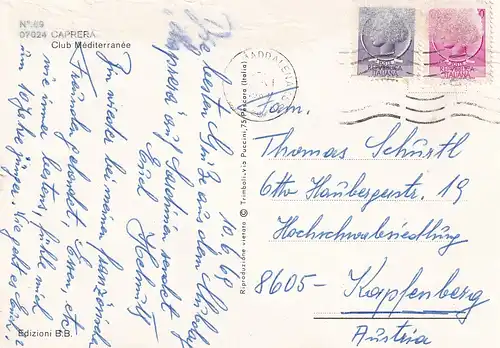 N° 69
07024 CAPRERA
Club Méditerranée
10.6.68
Die besten Grüße aus dem Urlaub
in Caprera auf Sardinien sendet
Euch Helmut
Bin wieder bei meinen französischen
Freunden gelandet, Essen etc.
wie immer bestens, fühle mich
um 10 Jahre jünger. Wie geht es Euch?
Edizioni B.B.
Riproduzione vietata © Trimboli, via Puccini, 75/Pescara (Italia)
MADDALENA
REPUBBLICA
ITALIANA
REPUBBLICA
ITALIANA
Fam.
Thomas Schürtl
Otto Haubergerstr. 19
Hochschwabsiedlung
8605- Kapfenberg
Austria